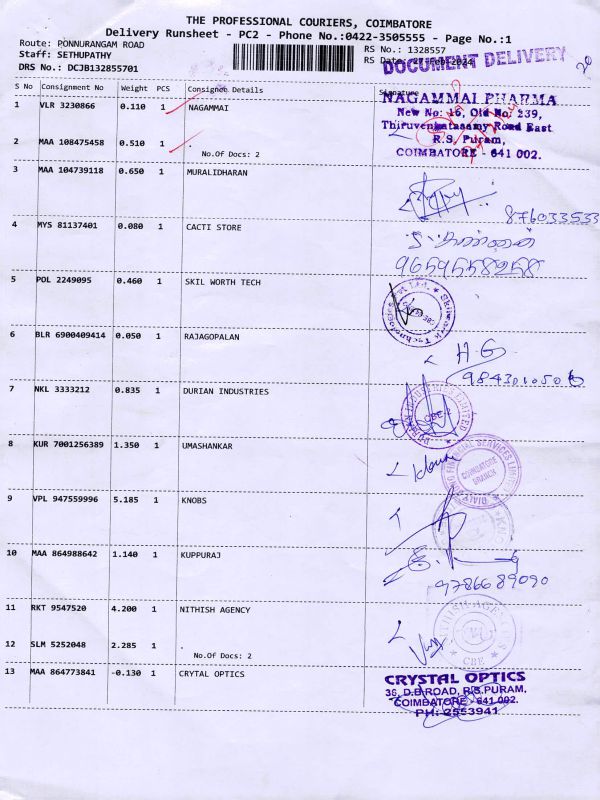 THE PROFESSIONAL COURIERS, COIMBATORE
Delivery Runsheet - PC2 - Phone No.:0422-3505555 - Page No.:1
Route: PONNURANGAM ROAD
Staff: SETHUPATHY
DRS No.: DCJB132855701
RS No.: 1328557
RS Date:
DOCUMENT DELIVERY
S No Consignment No Weight PCS Consignee Details Signature
1 VLR 3230866 0.110 1 NAGAMMAI
NAGAMMAI PHARMA
New No: 16, Old No: 239,
Thiruvenkatasamy Road East
R.S. Puram,
COIMBATORE - 641 002.
2 MAA 108475458 0.510 1 .
No.Of Docs: 2
3 MAA 104739118 0.650 1 MURALIDHARAN
876033533
4 MYS 81137401 0.080 1 CACTI STORE
5 POL 2249095 0.460 1 SKIL WORTH TECH
6 BLR 6900409414 0.050 1 RAJAGOPALAN
H.G
9843010506
7 NKL 3333212 0.835 1 DURIAN INDUSTRIES
8 KUR 7001256389 1.350 1 UMASHANKAR
COIMBATORE
BRANCH
9 VPL 947559996 5.185 1 KNOBS
10 MAA 864988642 1.140 1 KUPPURAJ
9786689090
11 RKT 9547520 4.200 1 NITHISH AGENCY
CBE
12 SLM 5252048 2.285 1 .
No.Of Docs: 2
13 MAA 864773841 -0.130 1 CRYTAL OPTICS
CRYSTAL OPTICS
36, D.B.ROAD, R.S.PURAM,
COIMBATORE - 641 002.
PH: 2553941